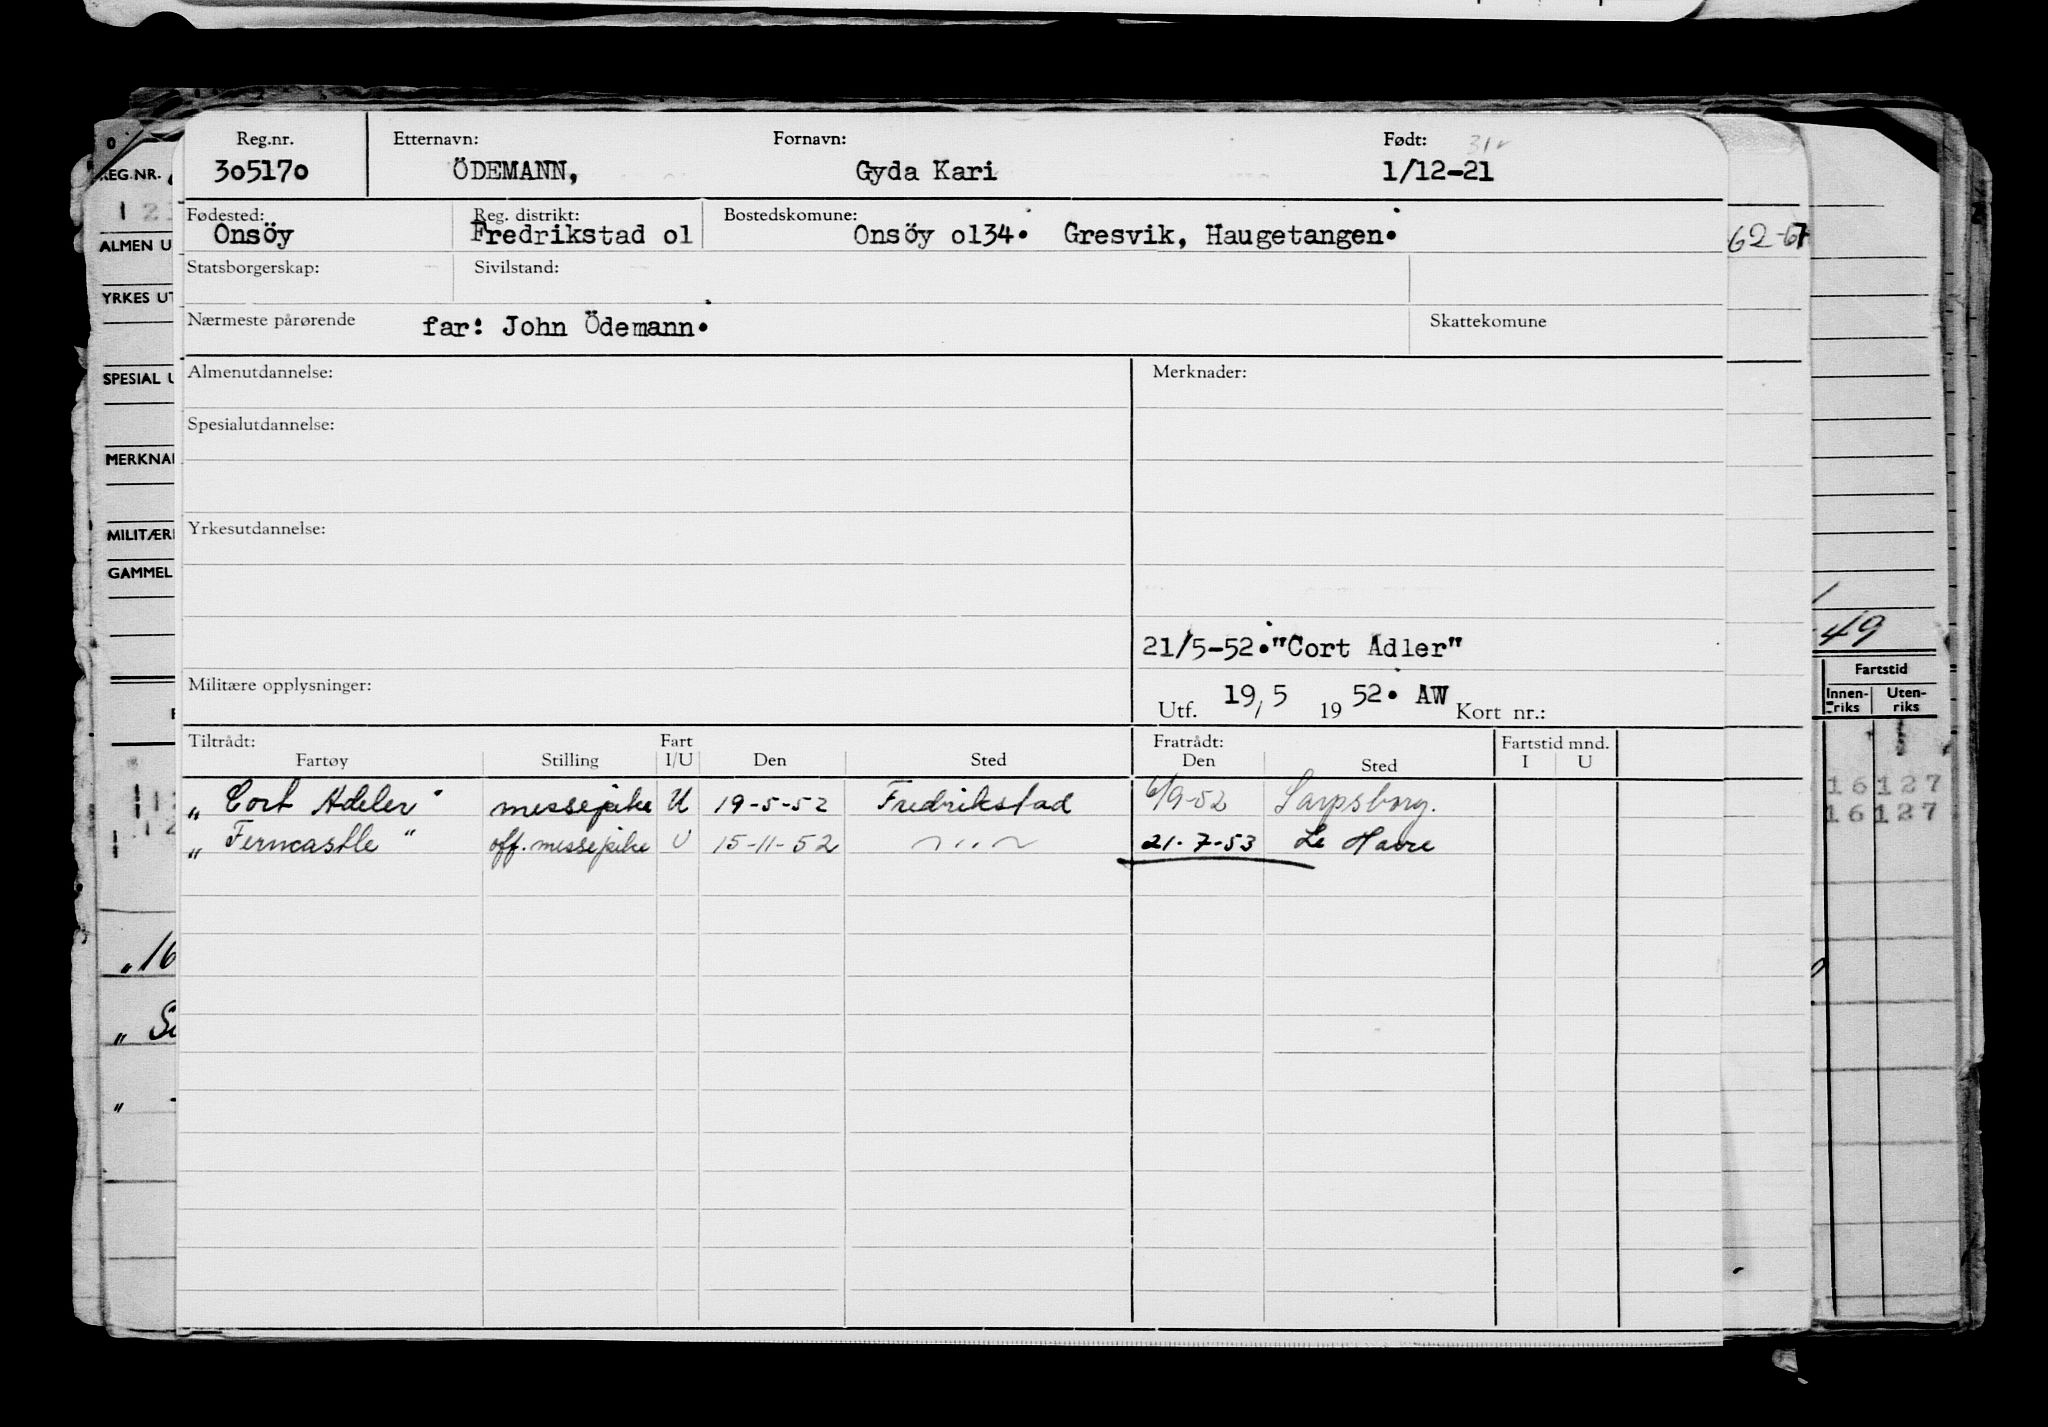 Reg.nr. Etternavn: Fornavn: Født:
305170 ÖDEMANN, Gyda Kari 1/12-21
Fødested: Reg. distrikt: Bostedskomune:
Onsöy Fredrikstad o1 Onsöy o134. Gresvik, Haugetangen.
Statsborgerskap: Sivilstand:
Nærmeste pårørende far: John Ödemann. Skattekomune
Almenutdannelse: Merknader:
Spesialutdannelse:
Yrkesutdannelse:
21/5-52."Cort Adler"
Militære opplysninger:
Utf. 19/5 1952. AW Kort nr.:
Tiltrådt: Fart Fratrådt: Fartstid mnd.
Fartøy Stilling I/U Den Sted Den Sted I U
„ Cort Adeler" messepike U 19-5-52 Fredrikstad 6/9-52 Sarpsborg.
„ Ferncastle " off. messepike U 15-11-52 — " — 21-7-53 Le Havre
REG.NR.
ALMEN U
YRKES UT
SPESIAL U
MERKNA
MILITÆR
GAMMEL
„16
„
62-67
49
Fartstid
Innen-riks Uten-riks
16 127
16 127